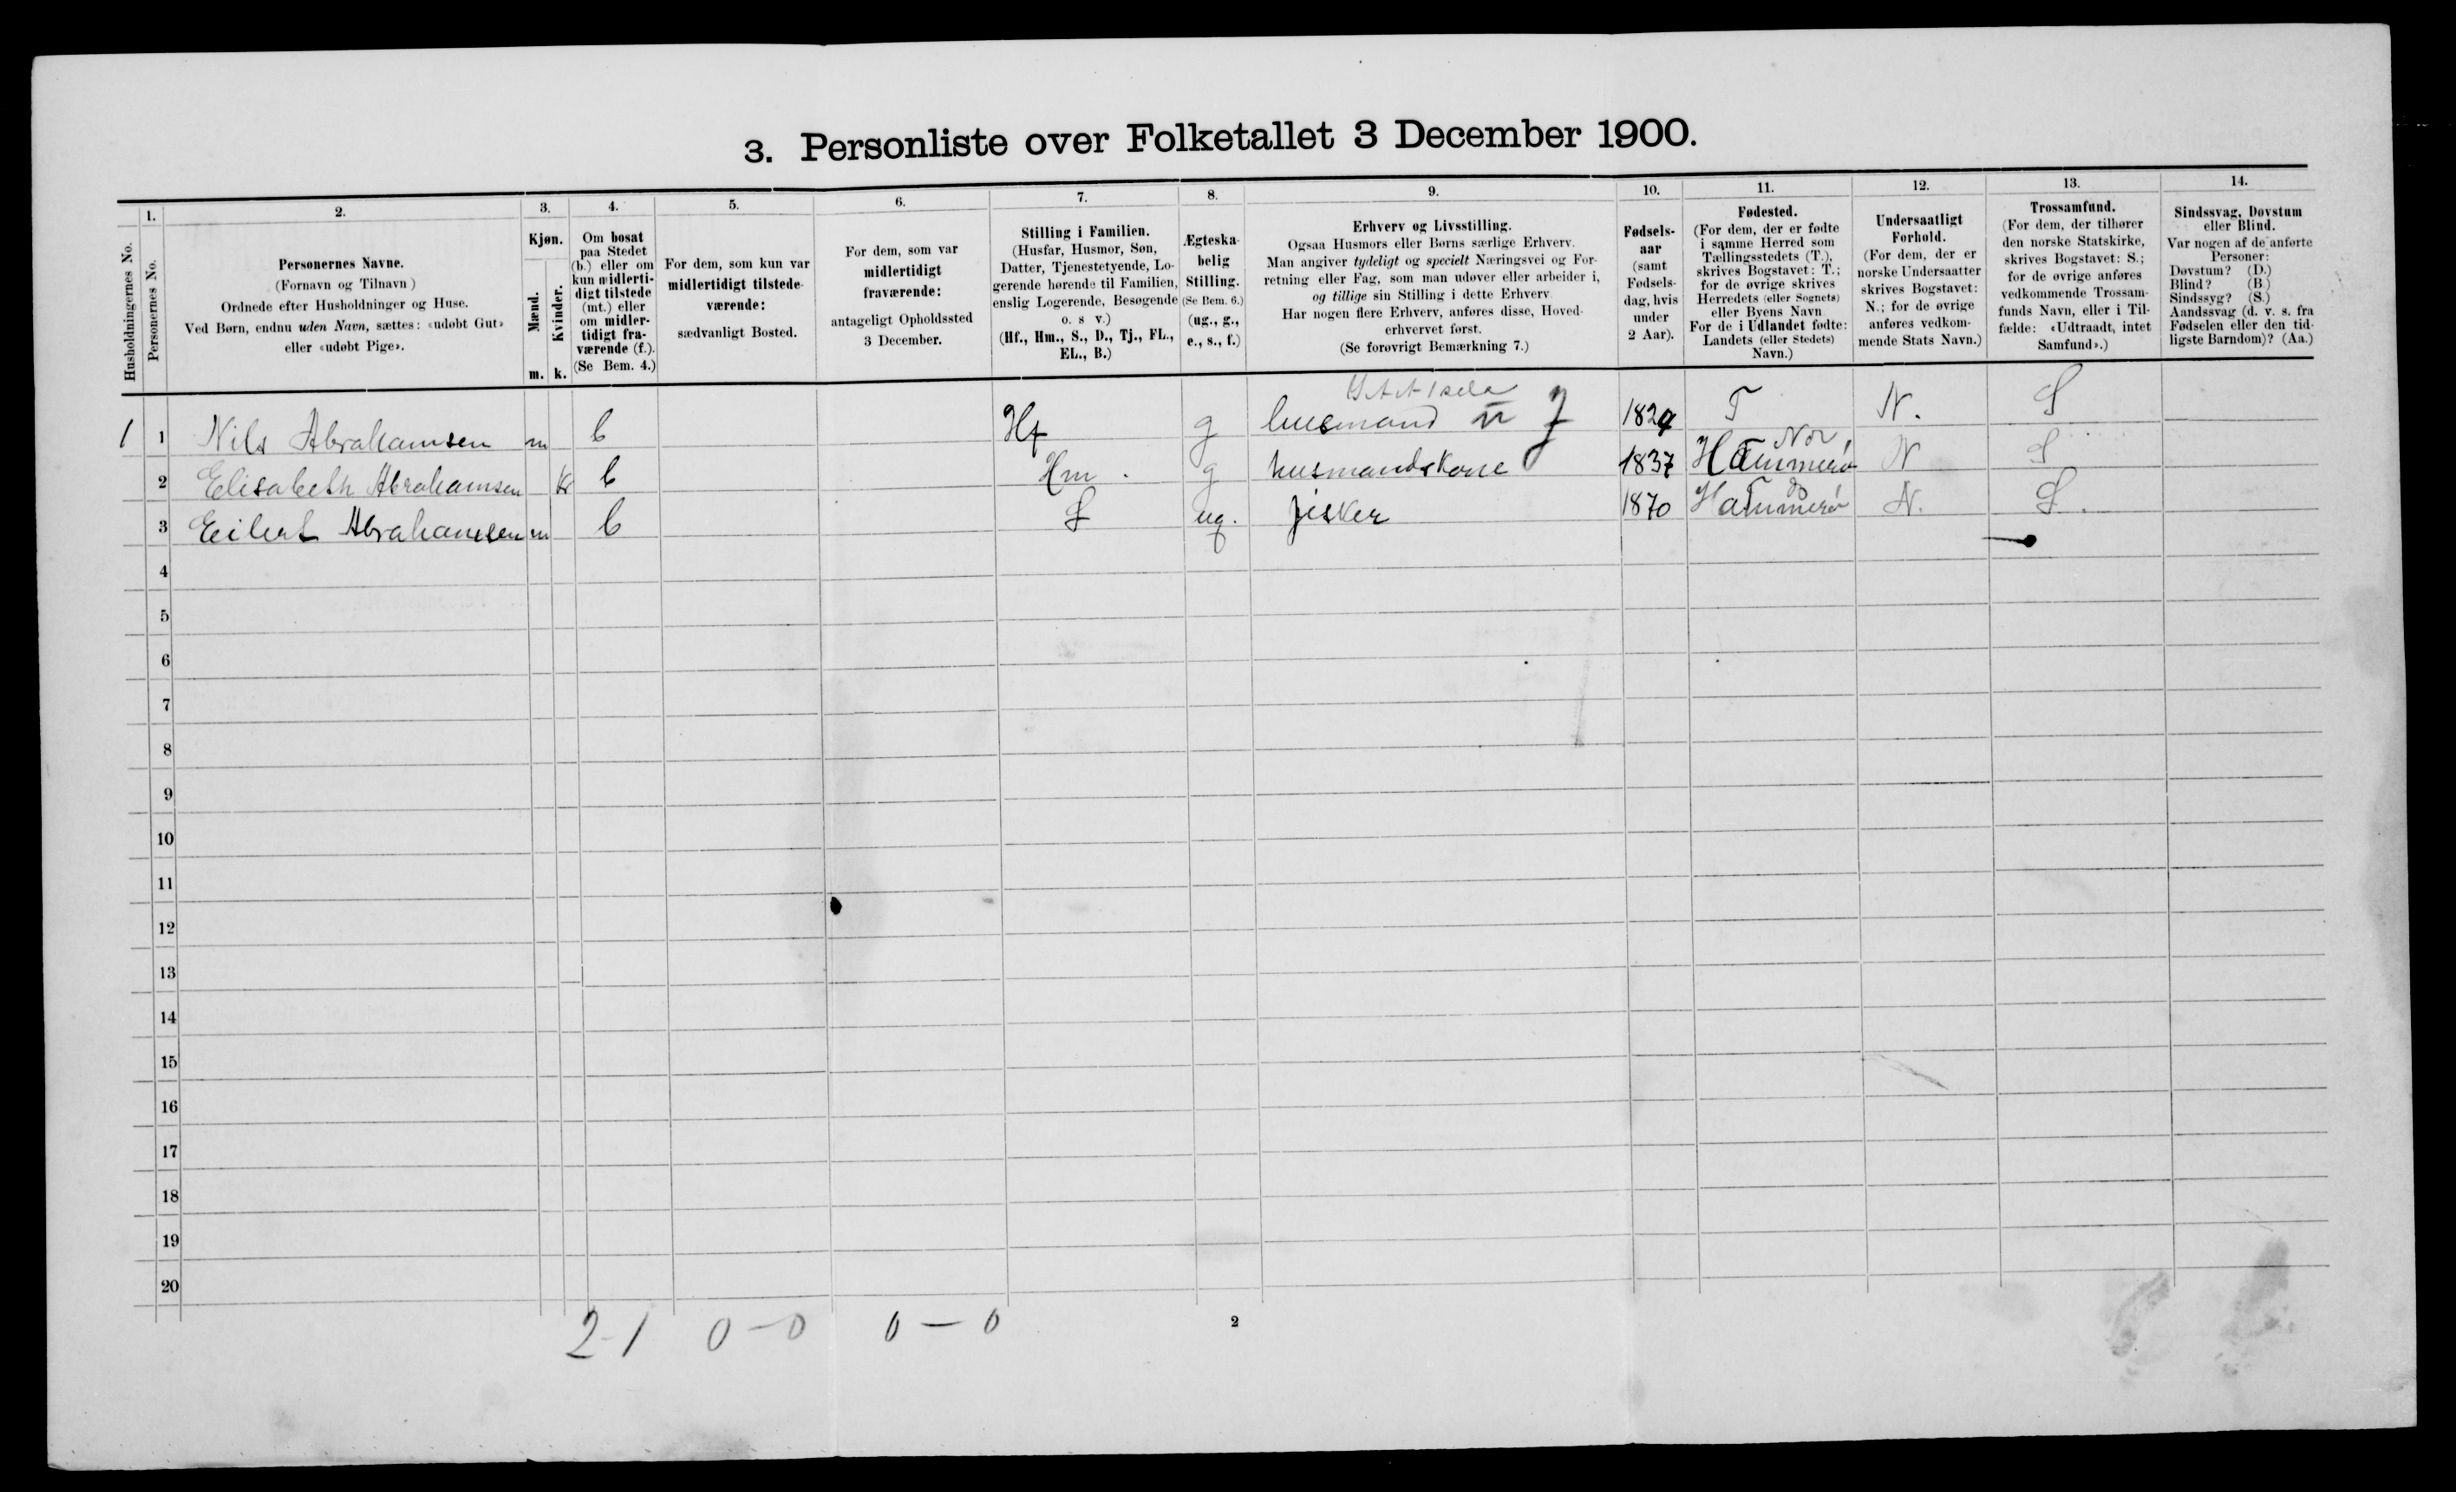 3. Personliste over Folketallet 3 December 1900.
1. 2. 3. 4. 5. 6. 7. 8. 9. 10. 11. 12. 13. 14.
Husholdningernes No.
Personernes No.
Personernes Navne.
(Fornavn og Tilnavn)
Ordnede efter Husholdninger og Huse.
Ved Børn, endnu uden Navn, sættes: «udøbt Gut»
eller «udøbt Pige».
Kjøn.
Mænd.
Kvinder.
m. k.
Om bosat
paa Stedet
(b.) eller om
kun midlerti-
digt tilstede
(mt.) eller
om midler-
tidigt fra-
værende (f.).
(Se Bem. 4.)
For dem, som kun var
midlertidigt tilstede-
værende:
sædvanligt Bosted.
For dem, som var
midlertidigt
fraværende:
antageligt Opholdssted
3 December.
Stilling i Familien.
(Husfar, Husmor, Søn,
Datter, Tjenestetyende, Lo-
gerende hørende til Familien,
enslig Logerende, Besøgende
o. s v.)
(Hf., Hm., S., D., Tj., FL.,
EL., B.)
Ægteska-
belig
Stilling.
(Se Bem. 6.)
(ug., g.,
e., s., f.)
Erhverv og Livsstilling.
Ogsaa Husmors eller Børns særlige Erhverv.
Man angiver tydeligt og specielt Næringsvei og For-
retning eller Fag, som man udøver eller arbeider i,
og tillige sin Stilling i dette Erhverv.
Har nogen flere Erhverv, anføres disse, Hoved-
erhvervet først.
(Se forøvrigt Bemærkning 7.)
Fødsels-
aar
(samt
Fødsels-
dag, hvis
under
2 Aar).
Fødested.
(For dem, der er fødte
i samme Herred som
Tællingsstedets (T.),
skrives Bogstavet: T.;
for de øvrige skrives
Herredets (eller Sognets)
eller Byens Navn
For de i Udlandet fødte:
Landets (eller Stedets)
Navn.)
Undersaatligt
Forhold.
(For dem, der er
norske Undersaatter
skrives Bogstavet:
N.; for de øvrige
anføres vedkom-
mende Stats Navn.)
Trossamfund.
(For dem, der tilhører
den norske Statskirke,
skrives Bogstavet: S.;
for de øvrige anføres
vedkommende Trossam-
funds Navn, eller i Til-
fælde: «Udtraadt, intet
Samfund».)
Sindssvag, Døvstum
eller Blind.
Var nogen af de anførte
Personer:
Døvstum? (D.)
Blind? (B.)
Sindssyg? (S.)
Aandssvag (d. v. s. fra
Fødselen eller den tid-
ligste Barndom)? (Aa.)
1 1 Nils Abrahamsen m b Hf g husmand 1829 T N. S
Nor
2 Elisabeth Abrahamsen k b Hm. g husmandskone 1837 Hammerø N S
do
3 Eilert Abrahamsen m b S ug. fisker 1870 Hammerø N. S.
4
5
6
7
8
9
10
11
12
13
14
15
16
17
18
19
20
2-1 0-0 0-0
2